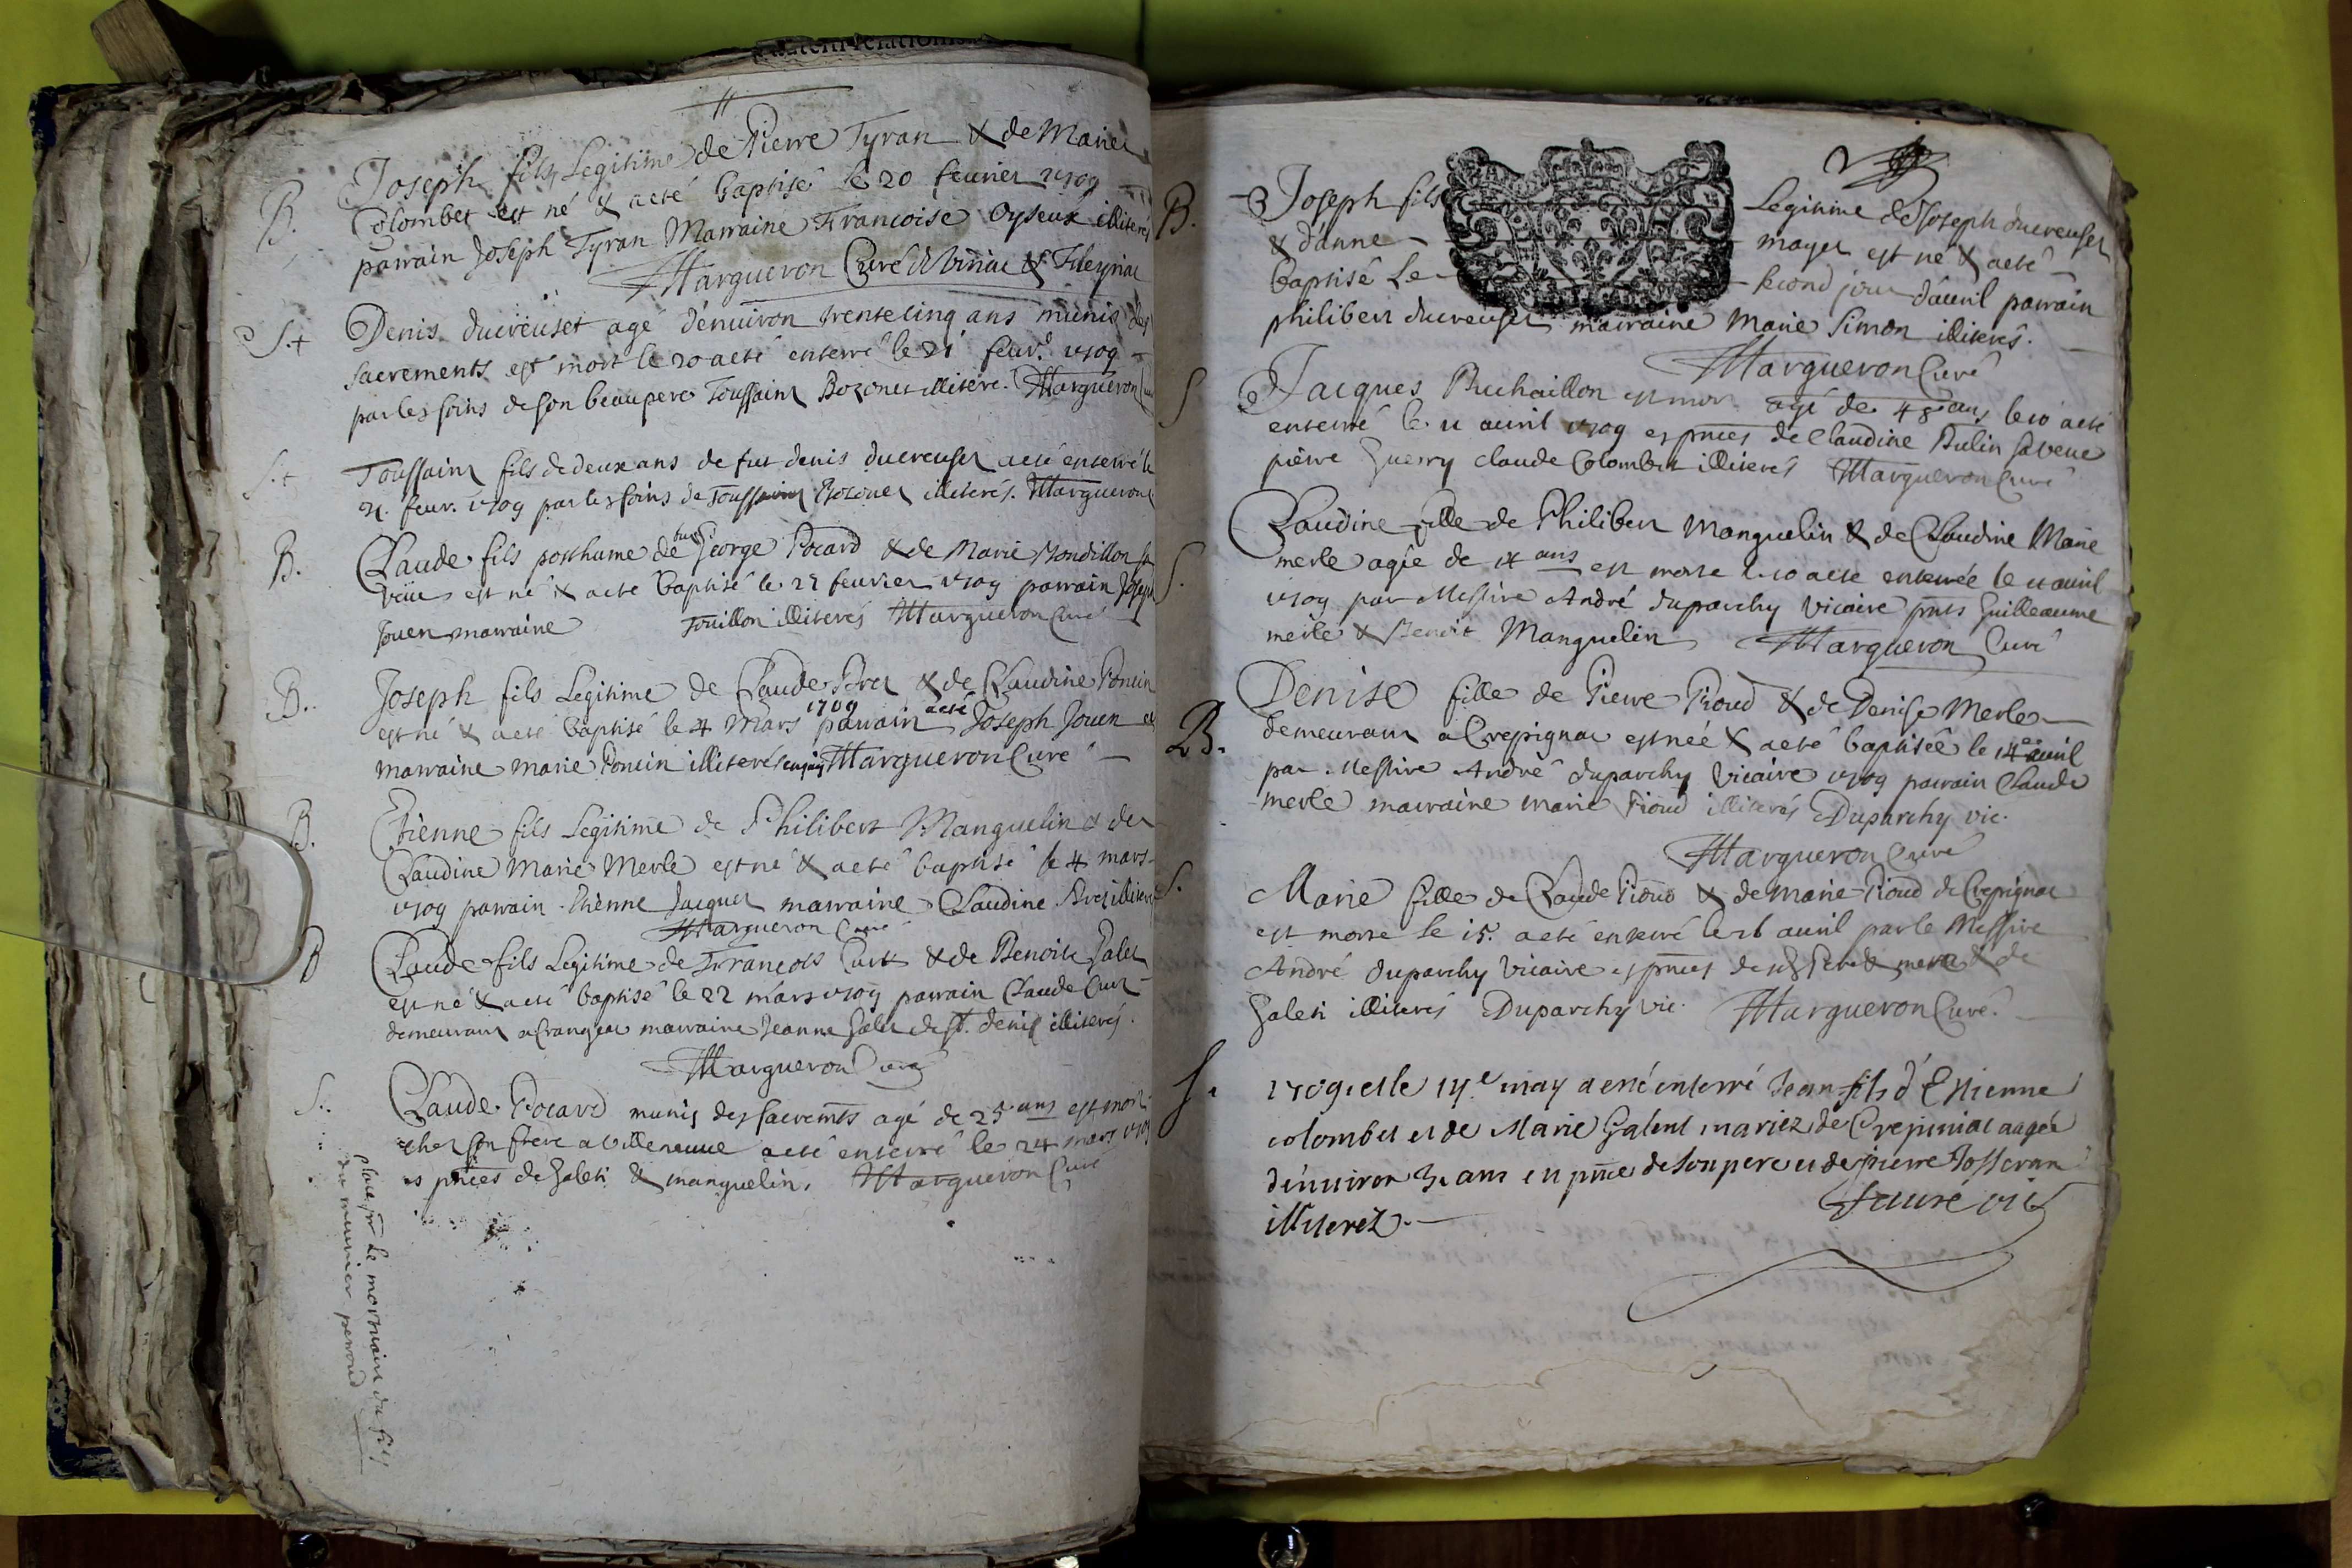 B. Joseph fils Legitime de Pierre Tyran & de Marie
Colombet est né & aeté baptisé le 20 feurier 1709
parrain Joseph Tyran Marraine Francoise Oyseux illiterés
Margueron Curé
S.+ Denis ducreuset agé d'enuiron trente cinq ans munis des
sacrements est mort le 20 aeté enterré le 21 feur. 1709
par les soins de son beaupere Toussaint Bozonet illitere. Margueron
S.+ Toussaint fils de deux ans de fut denis ducreuset aeté enterré le
21. feur. 1709 par les soins de Toussaint Bozonet illiterés. Margueron
B. Claude fils posthume de George Pocard & de Marie
est né & aeté baptisé le feurier 1709 parrain Joseph
Jouen marraine illiterés Margueron Curé
B. Joseph fils Legitime de Claude Bret & de Claudine Poncin
est né & aeté baptisé le 4 Mars 1709 parrain aeté Joseph Jouen et
marraine marie Poncin illiterés Margueron Curé
B. Etienne fils Legitime de Philibert Manguelin & de
Claudine Marie Merle est né & aeté baptisé le 4 mars
1709 parrain Etienne Jacquet marraine Claudine Bret illiterés
Margueron Curé
B Claude fils Legitime de Francois Curt & de Benoite Galet
est né & aeté baptisé le 22 mars 1709 parrain Claude Curt
demeurant a Crangeac marraine Jeanne Galet de St. denis illiterés.
Margueron Curé
S. Claude Pocard munis des sacremts agé de 25 ans est mort
chez son frere a villeneuue aeté enterré le 24 mars 1709
es pnces de Galeti & manguelin. Margueron Curé
place pr le mortuaire du fils
du meunier perroud
B. Joseph fils Legitime de Joseph ducreuset
& d'anne mayet est né & aeté
baptisé Le second jour d'auril parrain
philibert ducreuset marraine Marie Simon illiterés.
Margueron Curé
S Jacques Puchaillon est mort agé de 48 ans le 10 aeté
enterré le 11 auril 1709 es pnces de Claudine Bulin sa veue
pierre Guerry claude Colombet illiterés Margueron Curé
S. Claudine fille de Philibert Manguelin & de Claudine Marie
merle agée de 14 ans est morte le 10 aete enterrée le 11 auril
1709 par Messire André duparchy vicaire pnts Guilleaume
merle & Benoit Manguelin Margueron Curé
B. Denise fille de Pierre Pioud & de Denise Merle
demeurant a Crepignac est née & aeté baptisée le 14 auril
par Messire André duparchy vicaire 1709 parrain Claude
merle marraine marie Pioud illiterés Duparchy vic.
Margueron Curé
S. Marie fille de Claude Pioud & de marie Pioud de Crepignac
est morte le 15. aeté enterré le 16 auril par le Messire
André duparchy vicaire es pnces de ses pere & mere & de
Galeti illiterés Duparchy vic. Margueron Curé.
S. 1709 et le 14e may a eté enterré Jean fils d'Estienne
colombet et de Marie Galent mariez de Crepiniat aagée
d'enuiron 3. ans en pnce de son pere et de pierre Josseran
illiterez. Fauré vic